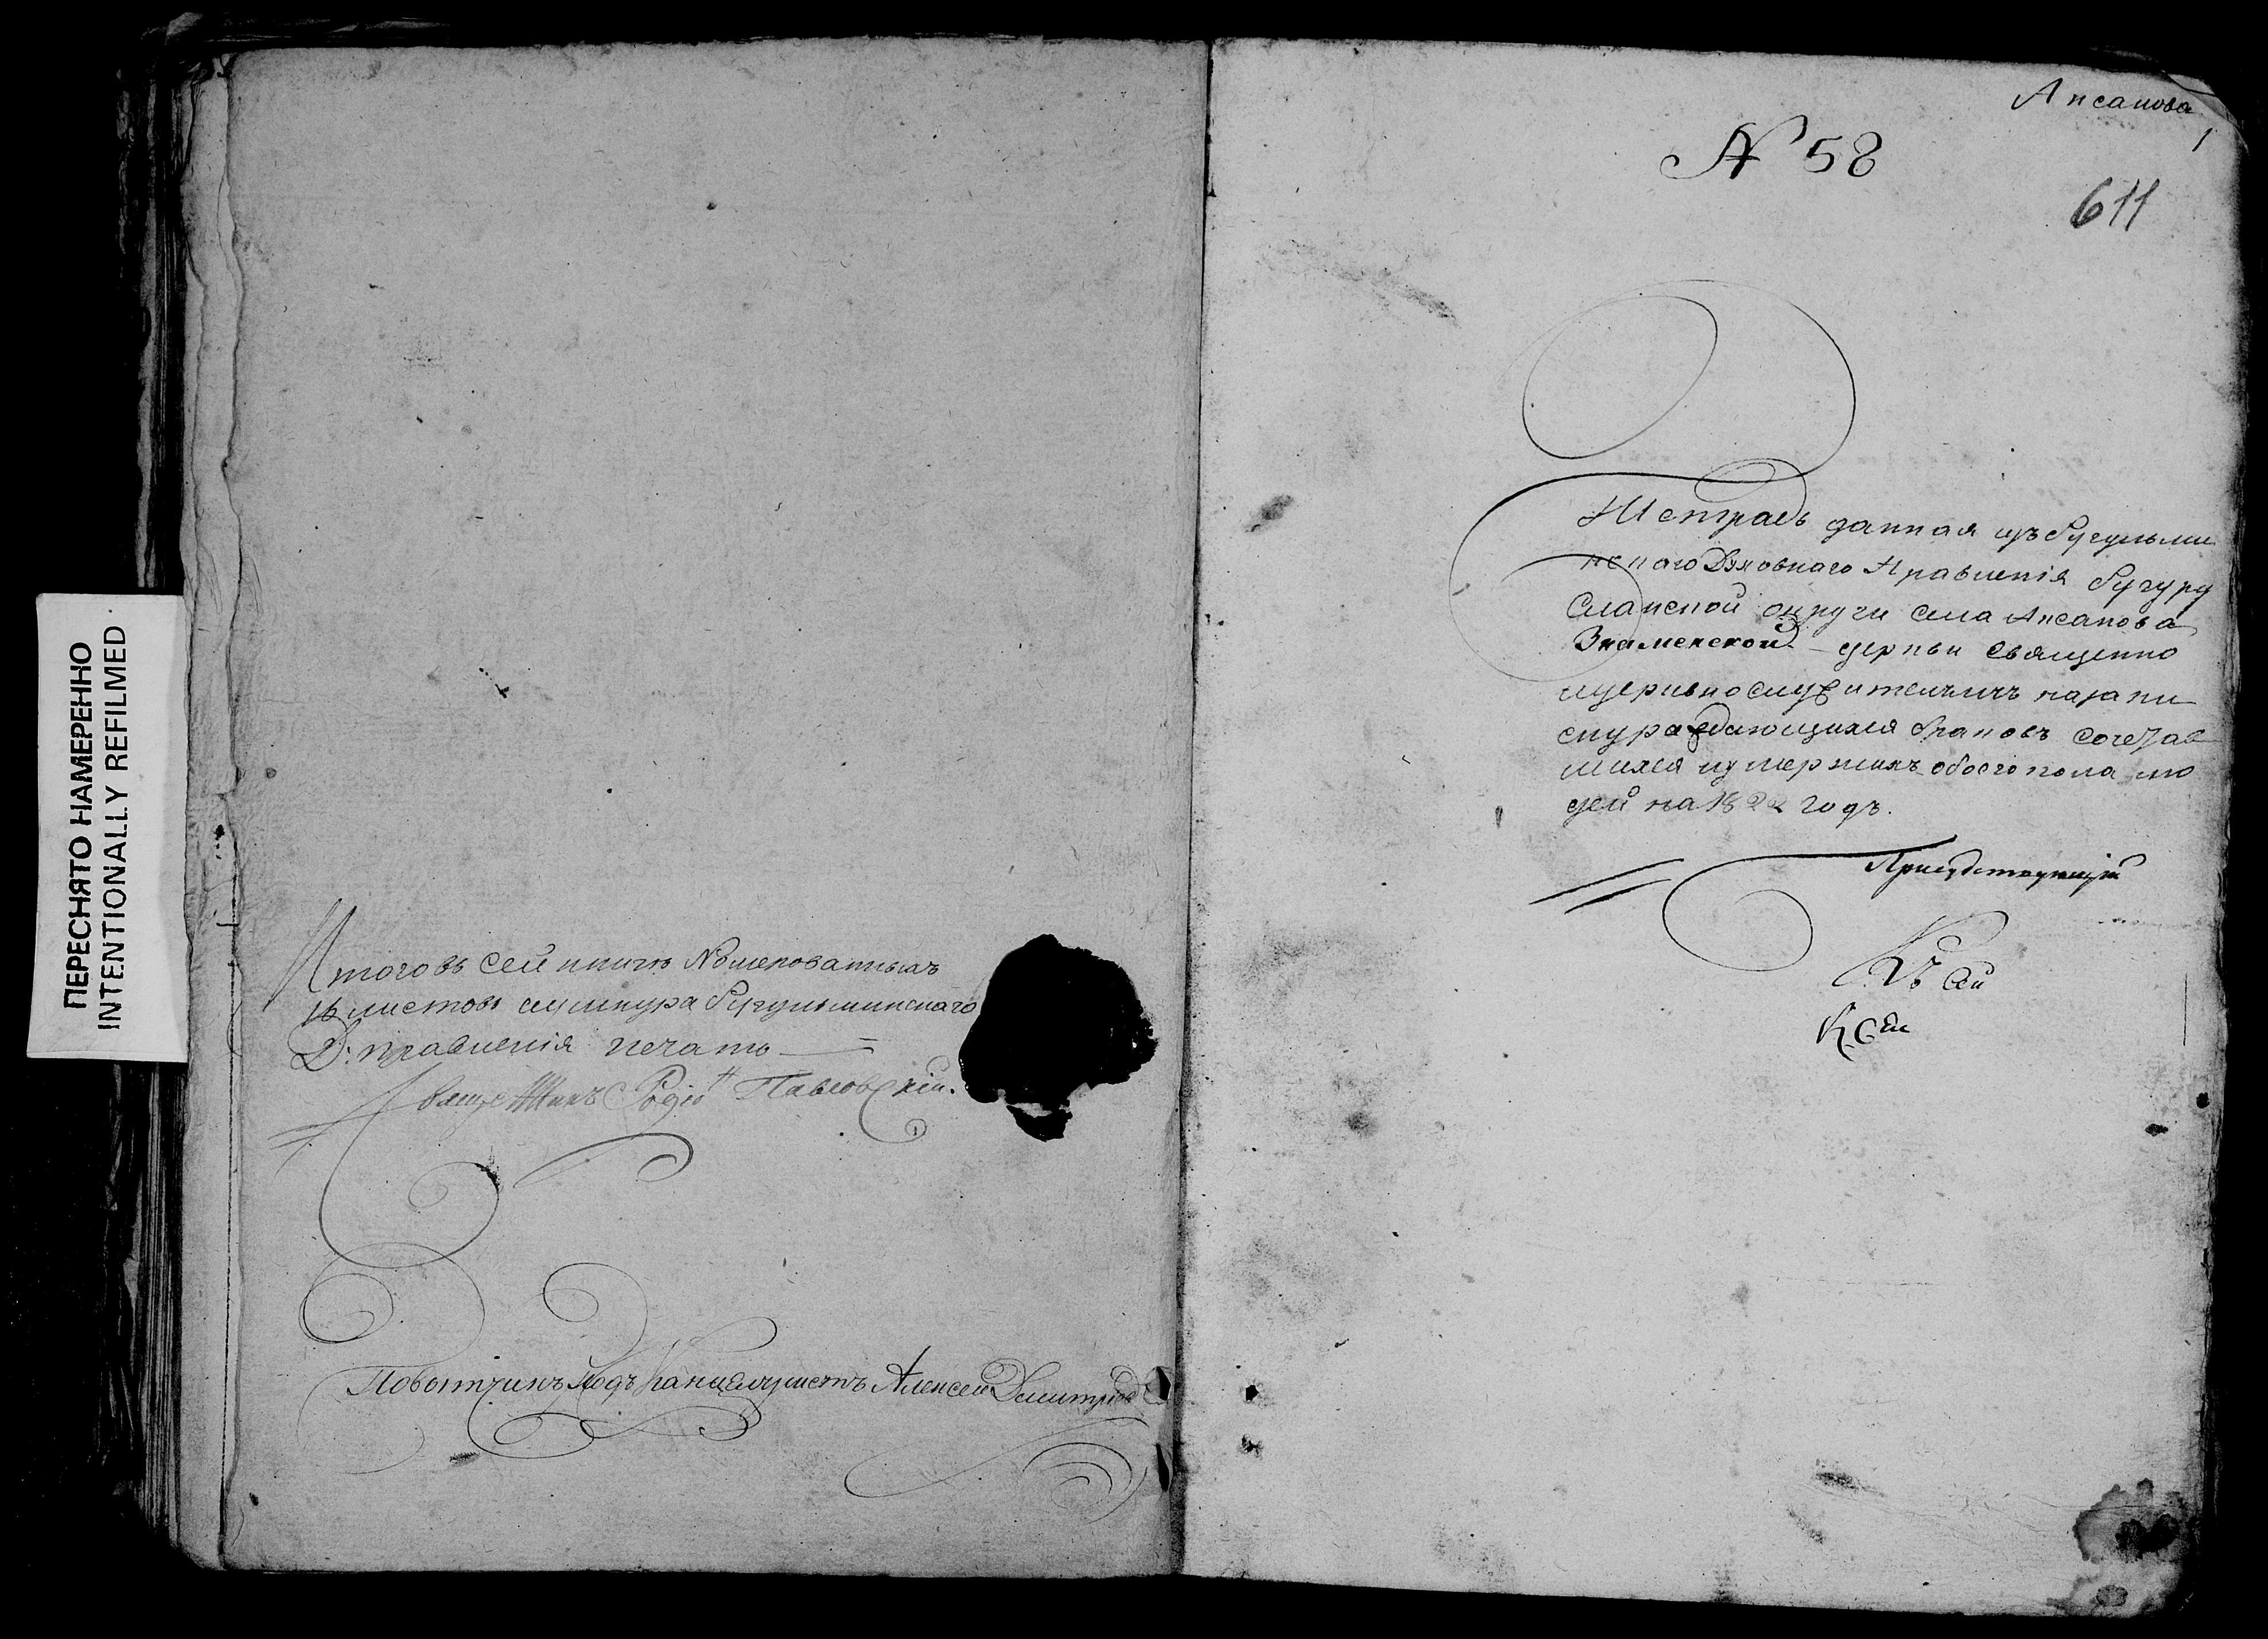 ПЕРЕСНЯТО НАМЕРЕННО
INTENTIONALLY REFILMED
Итого въ сей книге Nумерованныхъ
листовъ шнура Бугульминскаго
Д: правленія печатью
Священникъ Родіонъ Павловскій.
Повытчикъ Подъканцеляристъ Алексей Дмитріев
Аксакова
1
N 58
611
Тетрадь данная изъ Бугульмин
скаго Духовнаго Правленія Бугуру
сланской округи села Аксакова
Знаменской церкви священно
ицерковнослужителямъ назапи
ску раждающихся браковъ сочетав
шихся иумершихъ обоего пола лю
дей на 1822 годъ.
Присудствующій
Къ сей